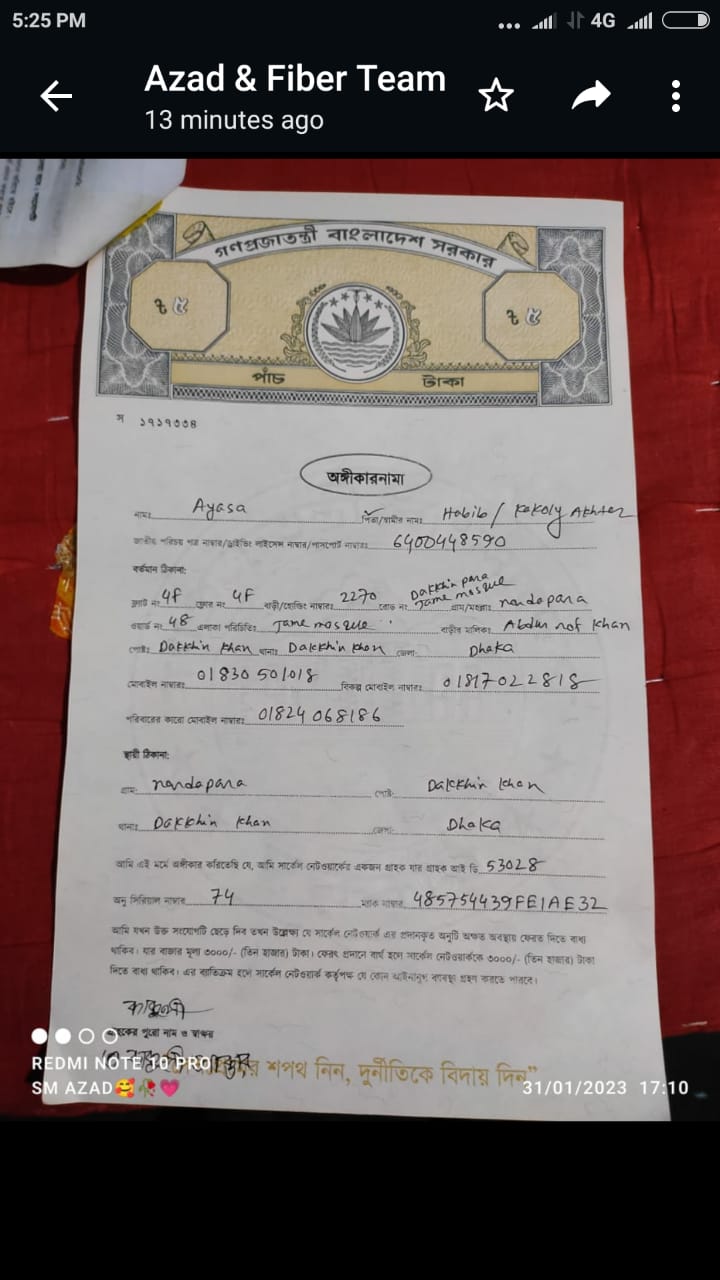 5:25 PM
4G
Azad & Fiber Team
13 minutes ago
গণপ্রজাতন্ত্রী বাংলাদেশ সরকার
৳ ৫
৳ ৫
পাঁচ টাকা
স ১৭১৭৩৩৪
অঙ্গীকারনামা
নামঃ Ayasa পিতা/স্বামীর নামঃ Habib / Kakoly Akhter
জাতীয় পরিচয় পত্র নাম্বার/ড্রাইভিং লাইসেন্স নাম্বার/পাসপোর্ট নাম্বারঃ 6400448590
বর্তমান ঠিকানা:
ফ্ল্যাট নং 4F ফ্লোর নং 4F বাড়ী/হোল্ডিং নাম্বারঃ 2270 রোড নং Dakkhin para Jame mosque গ্রাম/মহল্লাঃ nardapara
ওয়ার্ড নং 48 এলাকা পরিচিতিঃ Jame mosque বাড়ীর মালিকঃ Abdur rof khan
পোষ্টঃ Dakkhin khan থানাঃ Dakkhin khan জেলাঃ Dhaka
মোবাইল নাম্বারঃ 01830 501018 বিকল্প মোবাইল নাম্বারঃ 01817022818
পরিবারের কারো মোবাইল নাম্বারঃ 01824068186
স্থায়ী ঠিকানা:
গ্রাম: nardapara পোষ্ট: Dakkhin khan
থানাঃ Dakkhin khan জেলা: Dhaka
আমি এই মর্মে অঙ্গীকার করিতেছি যে, আমি সার্কেল নেটওয়ার্কের একজন গ্রাহক যার গ্রাহক আই ডি 53028
অনু সিরিয়াল নাম্বার 74 ম্যাক নাম্বার 485754439FE1AE32
আমি যখন উক্ত সংযোগটি ছেড়ে দিব তখন উল্লেক্ষ্য যে সার্কেল নেটওয়ার্ক এর প্রদানকৃত অনুটি অক্ষত অবস্থায় ফেরত দিতে বাধ্য
থাকিব। যার বাজার মূল্য ৩০০০/- (তিন হাজার) টাকা। ফেরৎ প্রদানে ব্যর্থ হলে সার্কেল নেটওয়ার্ককে ৩০০০/- (তিন হাজার) টাকা
দিতে বাধ্য থাকিব। এর ব্যতিক্রম হলে সার্কেল নেটওয়ার্ক কর্তৃপক্ষ যে কোন আইনানুগ ব্যবস্থা গ্রহণ করতে পারবে।
গ্রাহকের পুরো নাম ও স্বাক্ষর
শপথ নিন, দুর্নীতিকে বিদায় দিন”
REDMI NOTE 10 PRO
SM AZAD🥰🥀💗 31/01/2023 17:10